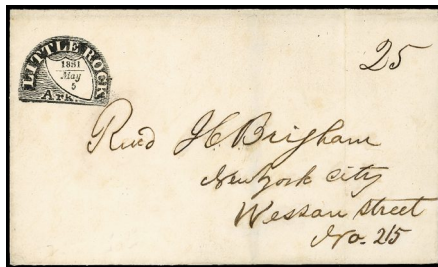 LITTLE ROCK
1851
May
5
Ark.
25
Revd J C Brigham
New york City
Wessan street
No. 25